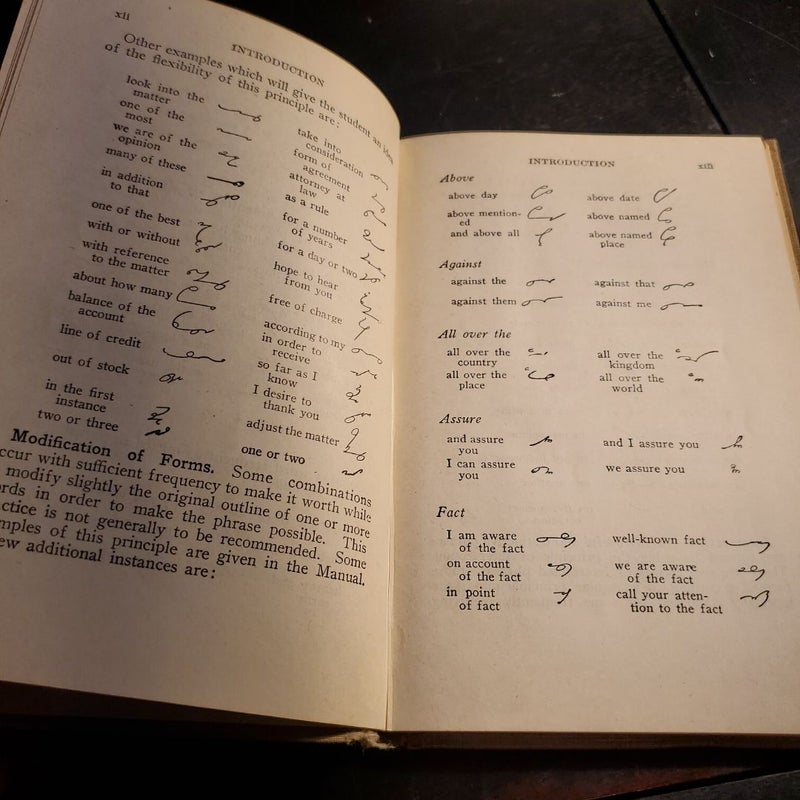 xii
INTRODUCTION
Other examples which will give the student an idea
of the flexibility of this principle are:
look into the
matter
one of the
most
we are of the
opinion
many of these
in addition
to that
one of the best
with or without
with reference
to the matter
about how many
balance of the
account
line of credit
out of stock
in the first
instance
two or three
take into
consideration
form of
agreement
attorney at
law
as a rule
for a number
of years
for a day or two
hope to hear
from you
free of charge
according to my
in order to
receive
so far as I
know
I desire to
thank you
adjust the matter
one or two
Modification of Forms. Some combinations
ccur with sufficient frequency to make it worth while
modify slightly the original outline of one or more
rds in order to make the phrase possible. This
ctice is not generally to be recommended. Some
mples of this principle are given in the Manual.
ew additional instances are:
INTRODUCTION
xiii
Above
above day
above date
above mention-
ed
above named
and above all
above named
place
Against
against the
against that
against them
against me
All over the
all over the
country
all over the
kingdom
all over the
place
all over the
world
Assure
and assure
you
and I assure you
I can assure
you
we assure you
Fact
I am aware
of the fact
well-known fact
on account
of the fact
we are aware
of the fact
in point
of fact
call your atten-
tion to the fact